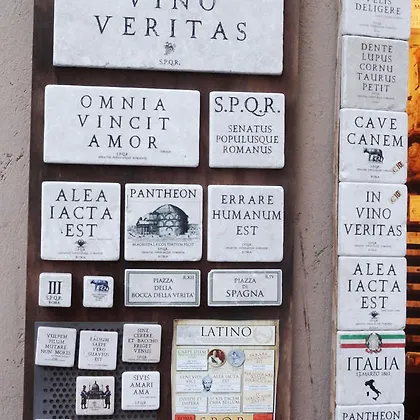 VINO
VERITAS
S.P.Q.R.
OMNIA
VINCIT
AMOR
S.P.Q.R.
SENATUS
POPULUSQUE
ROMANUS
ALEA
IACTA
EST
PANTHEON
ERRARE
HUMANUM
EST
III
S.P.Q.R.
ROMA
PIAZZA
DELLA
BOCCA DELLA VERITÀ
R.XII
PIAZZA
DI
SPAGNA
R.IV
VULPEM
PILUM
MUTARE
NON MORES
FALLIGIT
SAEPE
VERO
SINE
CERERE
ET BACCHO
FRIGET
VENUS
SI VIS
AMARI
AMA
LATINO
S.P.Q.R.
VELIS
DELIGERE
DENTE
LUPUS
CORNU
TAURUS
PETIT
CAVE
CANEM
ROMA
IN
VINO
VERITAS
ALEA
IACTA
EST
ITALIA
17 MARZO 1861
PANTHEON